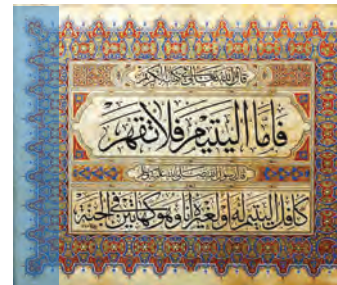 قال الله تعالى في كتابه الكريم
فَأَمَّا الْيَتِيمَ فَلَا تَقْهَرْ
قال رسول الله صلى الله عليه وسلم
كافل اليتيم له أو لغيره أنا وهو كهاتين في الجنة